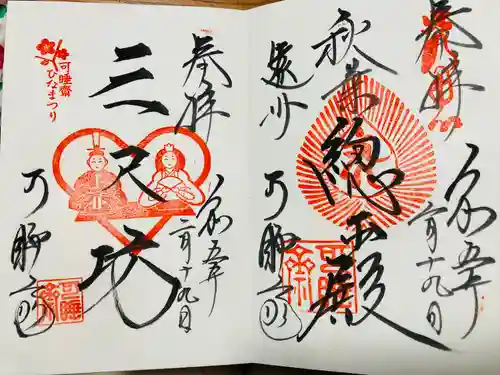 奉拝
秋葉總本殿
遠州
可睡斎
令和五年
二月十九日
奉拝
三尺坊
可睡齋
ひなまつり
可睡斎
令和五年
二月十九日